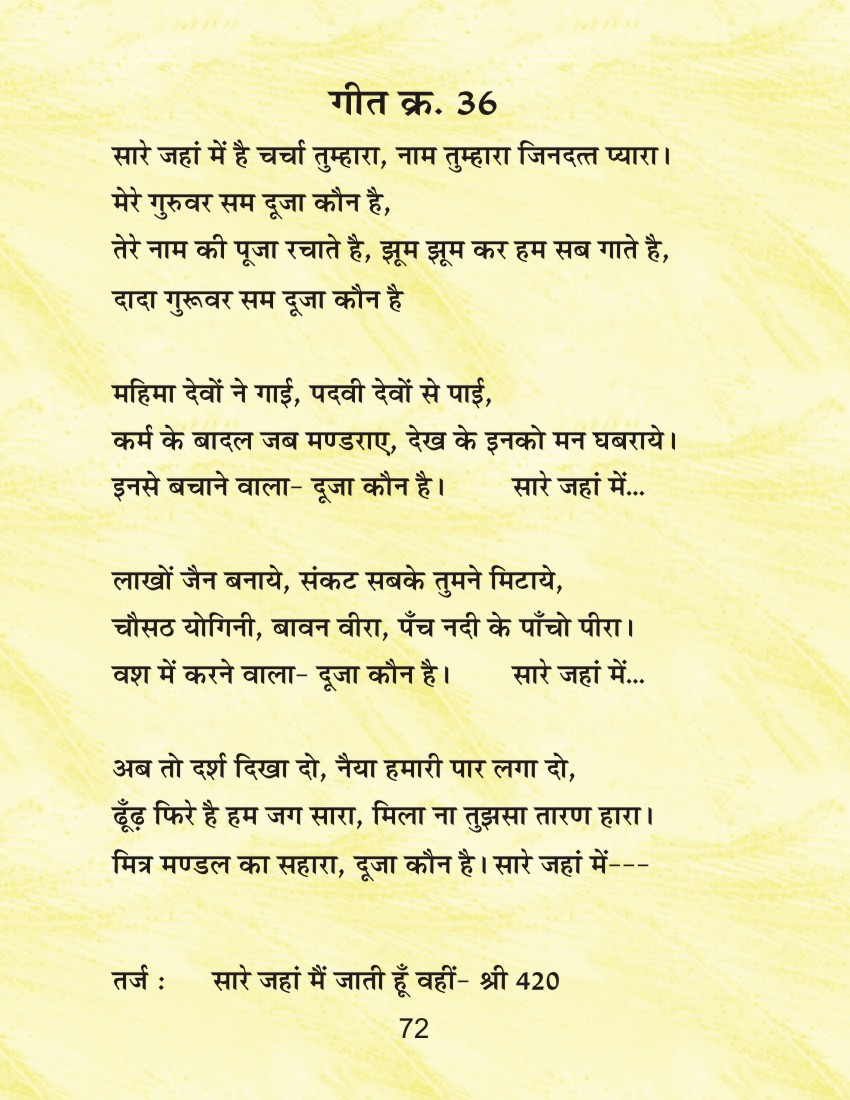 गीत क्र. 36
सारे जहां में है चर्चा तुम्हारा, नाम तुम्हारा जिनदत्त प्यारा।
मेरे गुरुवर सम दूजा कौन है,
तेरे नाम की पूजा रचाते है, झूम झूम कर हम सब गाते है,
दादा गुरूवर सम दूजा कौन है
महिमा देवों ने गाई, पदवी देवों से पाई,
कर्म के बादल जब मण्डराए, देख के इनको मन घबराये।
इनसे बचाने वाला- दूजा कौन है। सारे जहां में...
लाखों जैन बनाये, संकट सबके तुमने मिटाये,
चौसठ योगिनी, बावन वीरा, पँच नदी के पाँचो पीरा।
वश में करने वाला- दूजा कौन है। सारे जहां में...
अब तो दर्श दिखा दो, नैया हमारी पार लगा दो,
ढूँढ़ फिरे है हम जग सारा, मिला ना तुझसा तारण हारा।
मित्र मण्डल का सहारा, दूजा कौन है। सारे जहां में---
तर्ज : सारे जहां मैं जाती हूँ वहीं- श्री 420
72